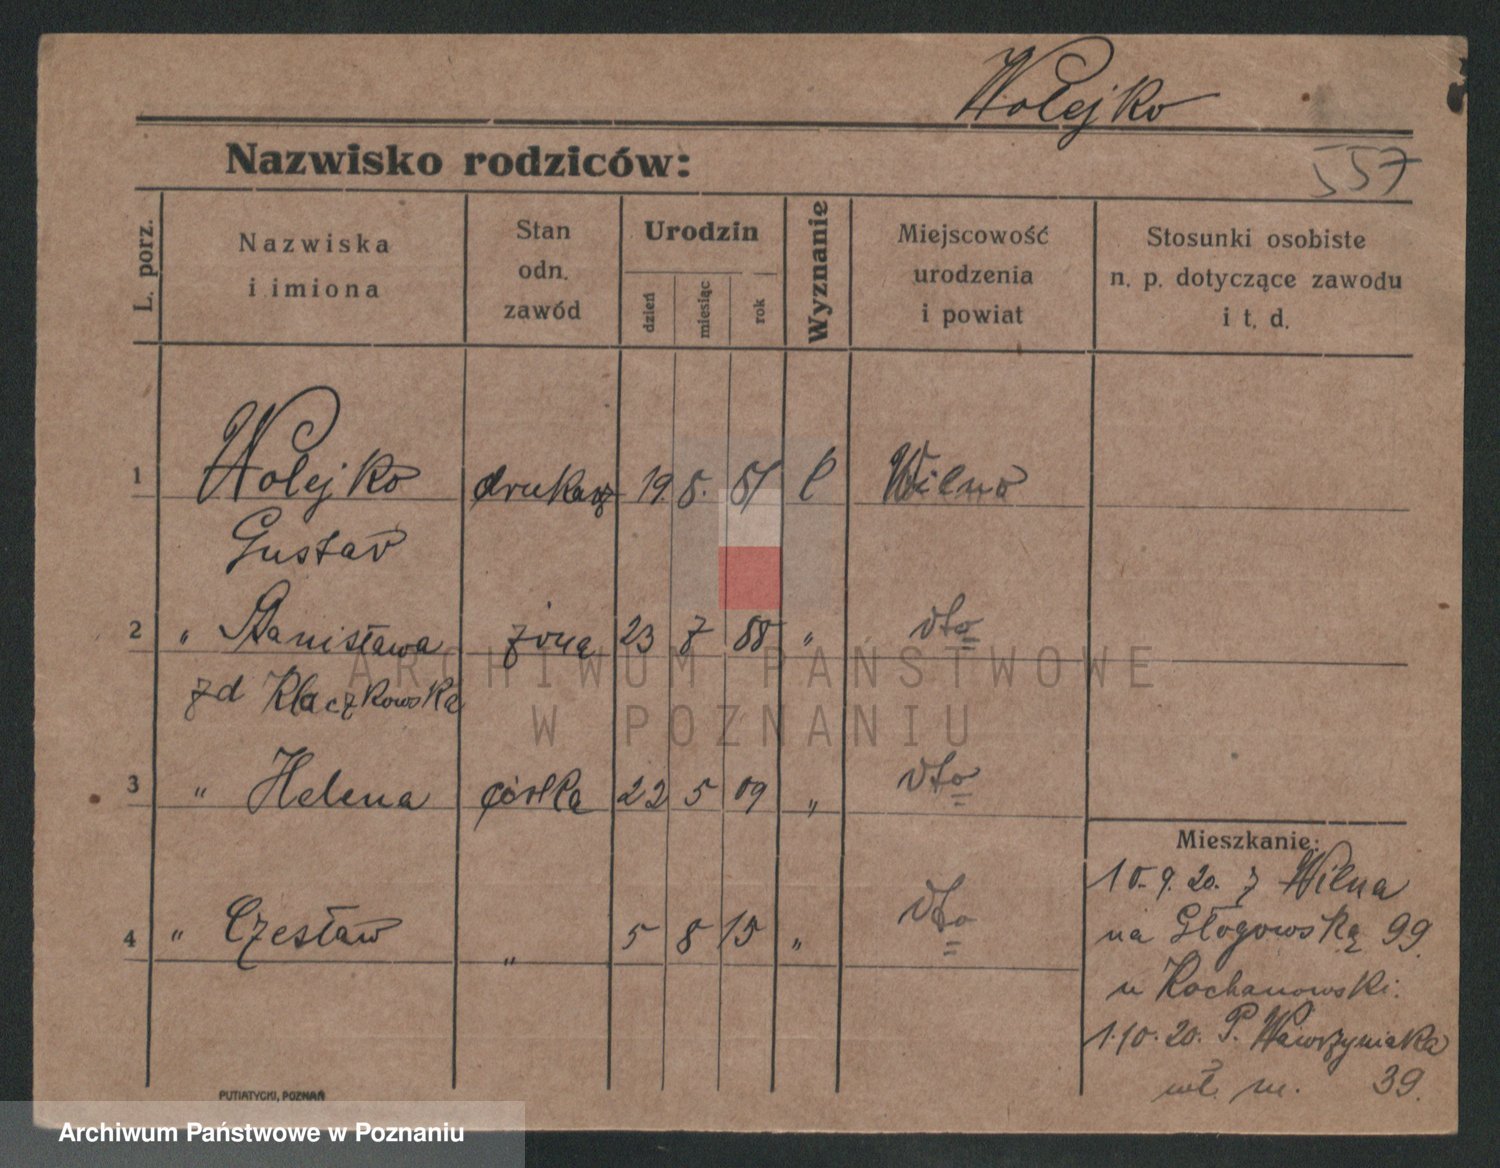 Wołejko
557
Nazwisko rodziców:
L. porz.
Nazwiska
i imiona
Stan
odn.
zawód
Urodzin
dzień
miesiąc
rok
Wyznanie
Miejscowość
urodzenia
i powiat
Stosunki osobiste
n. p. dotyczące zawodu
i t. d.
1 Wolejko drukarz 19. 8. 81 Wilno
Gustaw
2 " Stanisława żona 23 7 88 " dto
zd Klaczkowska
3 " Helena córka 22 5 09 " dto
4 " Czesław " 5 8 15 " dto
Mieszkanie:
10.9.20. z Wilna
na Głogowską 99.
u Kochanowski.
1.10.20. P. Wawrzyniaka
m. 39.
PUTIATYCKI, POZNAŃ
ARCHIWUM PAŃSTWOWE
W POZNANIU
Archiwum Państwowe w Poznaniu